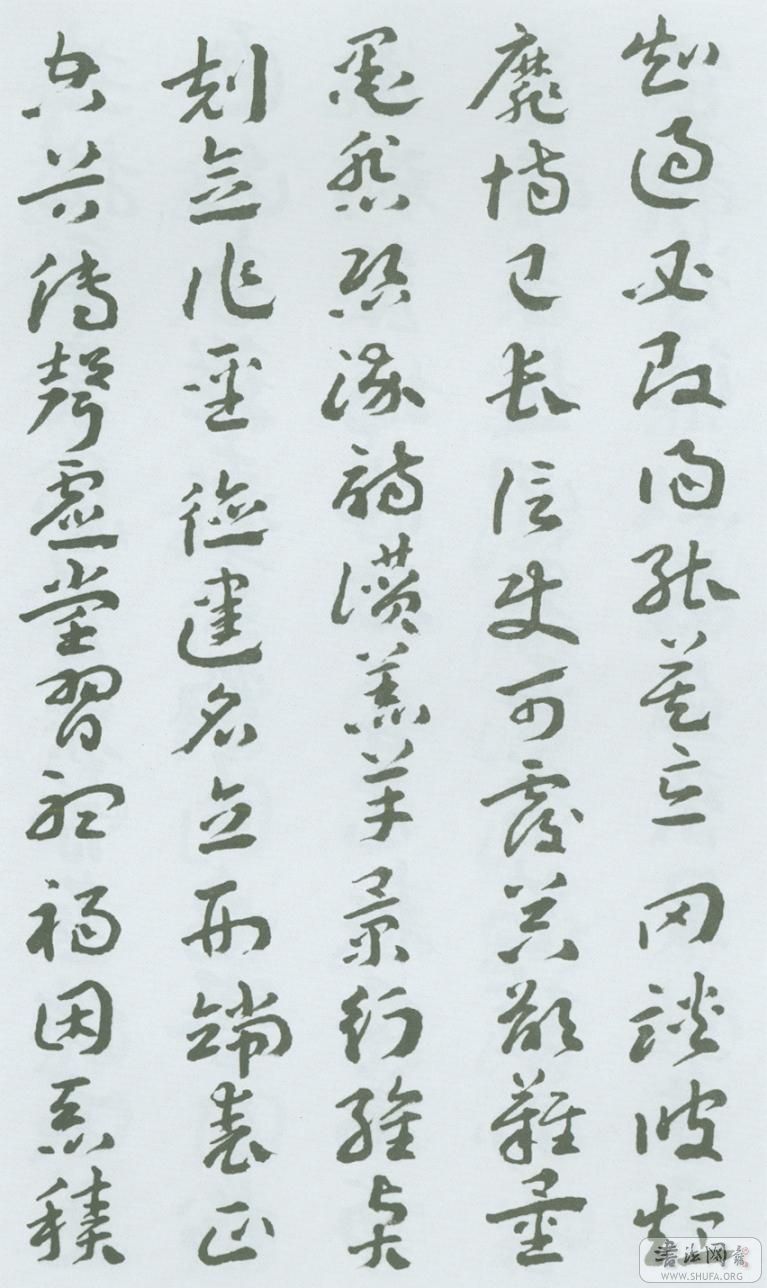 知過必改得能莫忘罔談彼短
靡恃己長信使可覆器欲難量
墨悲絲染詩讚羔羊景行維賢
剋念作聖德建名立形端表正
空谷傳聲虛堂習聽禍因惡積
書法网
WWW.SHUFA.ORG